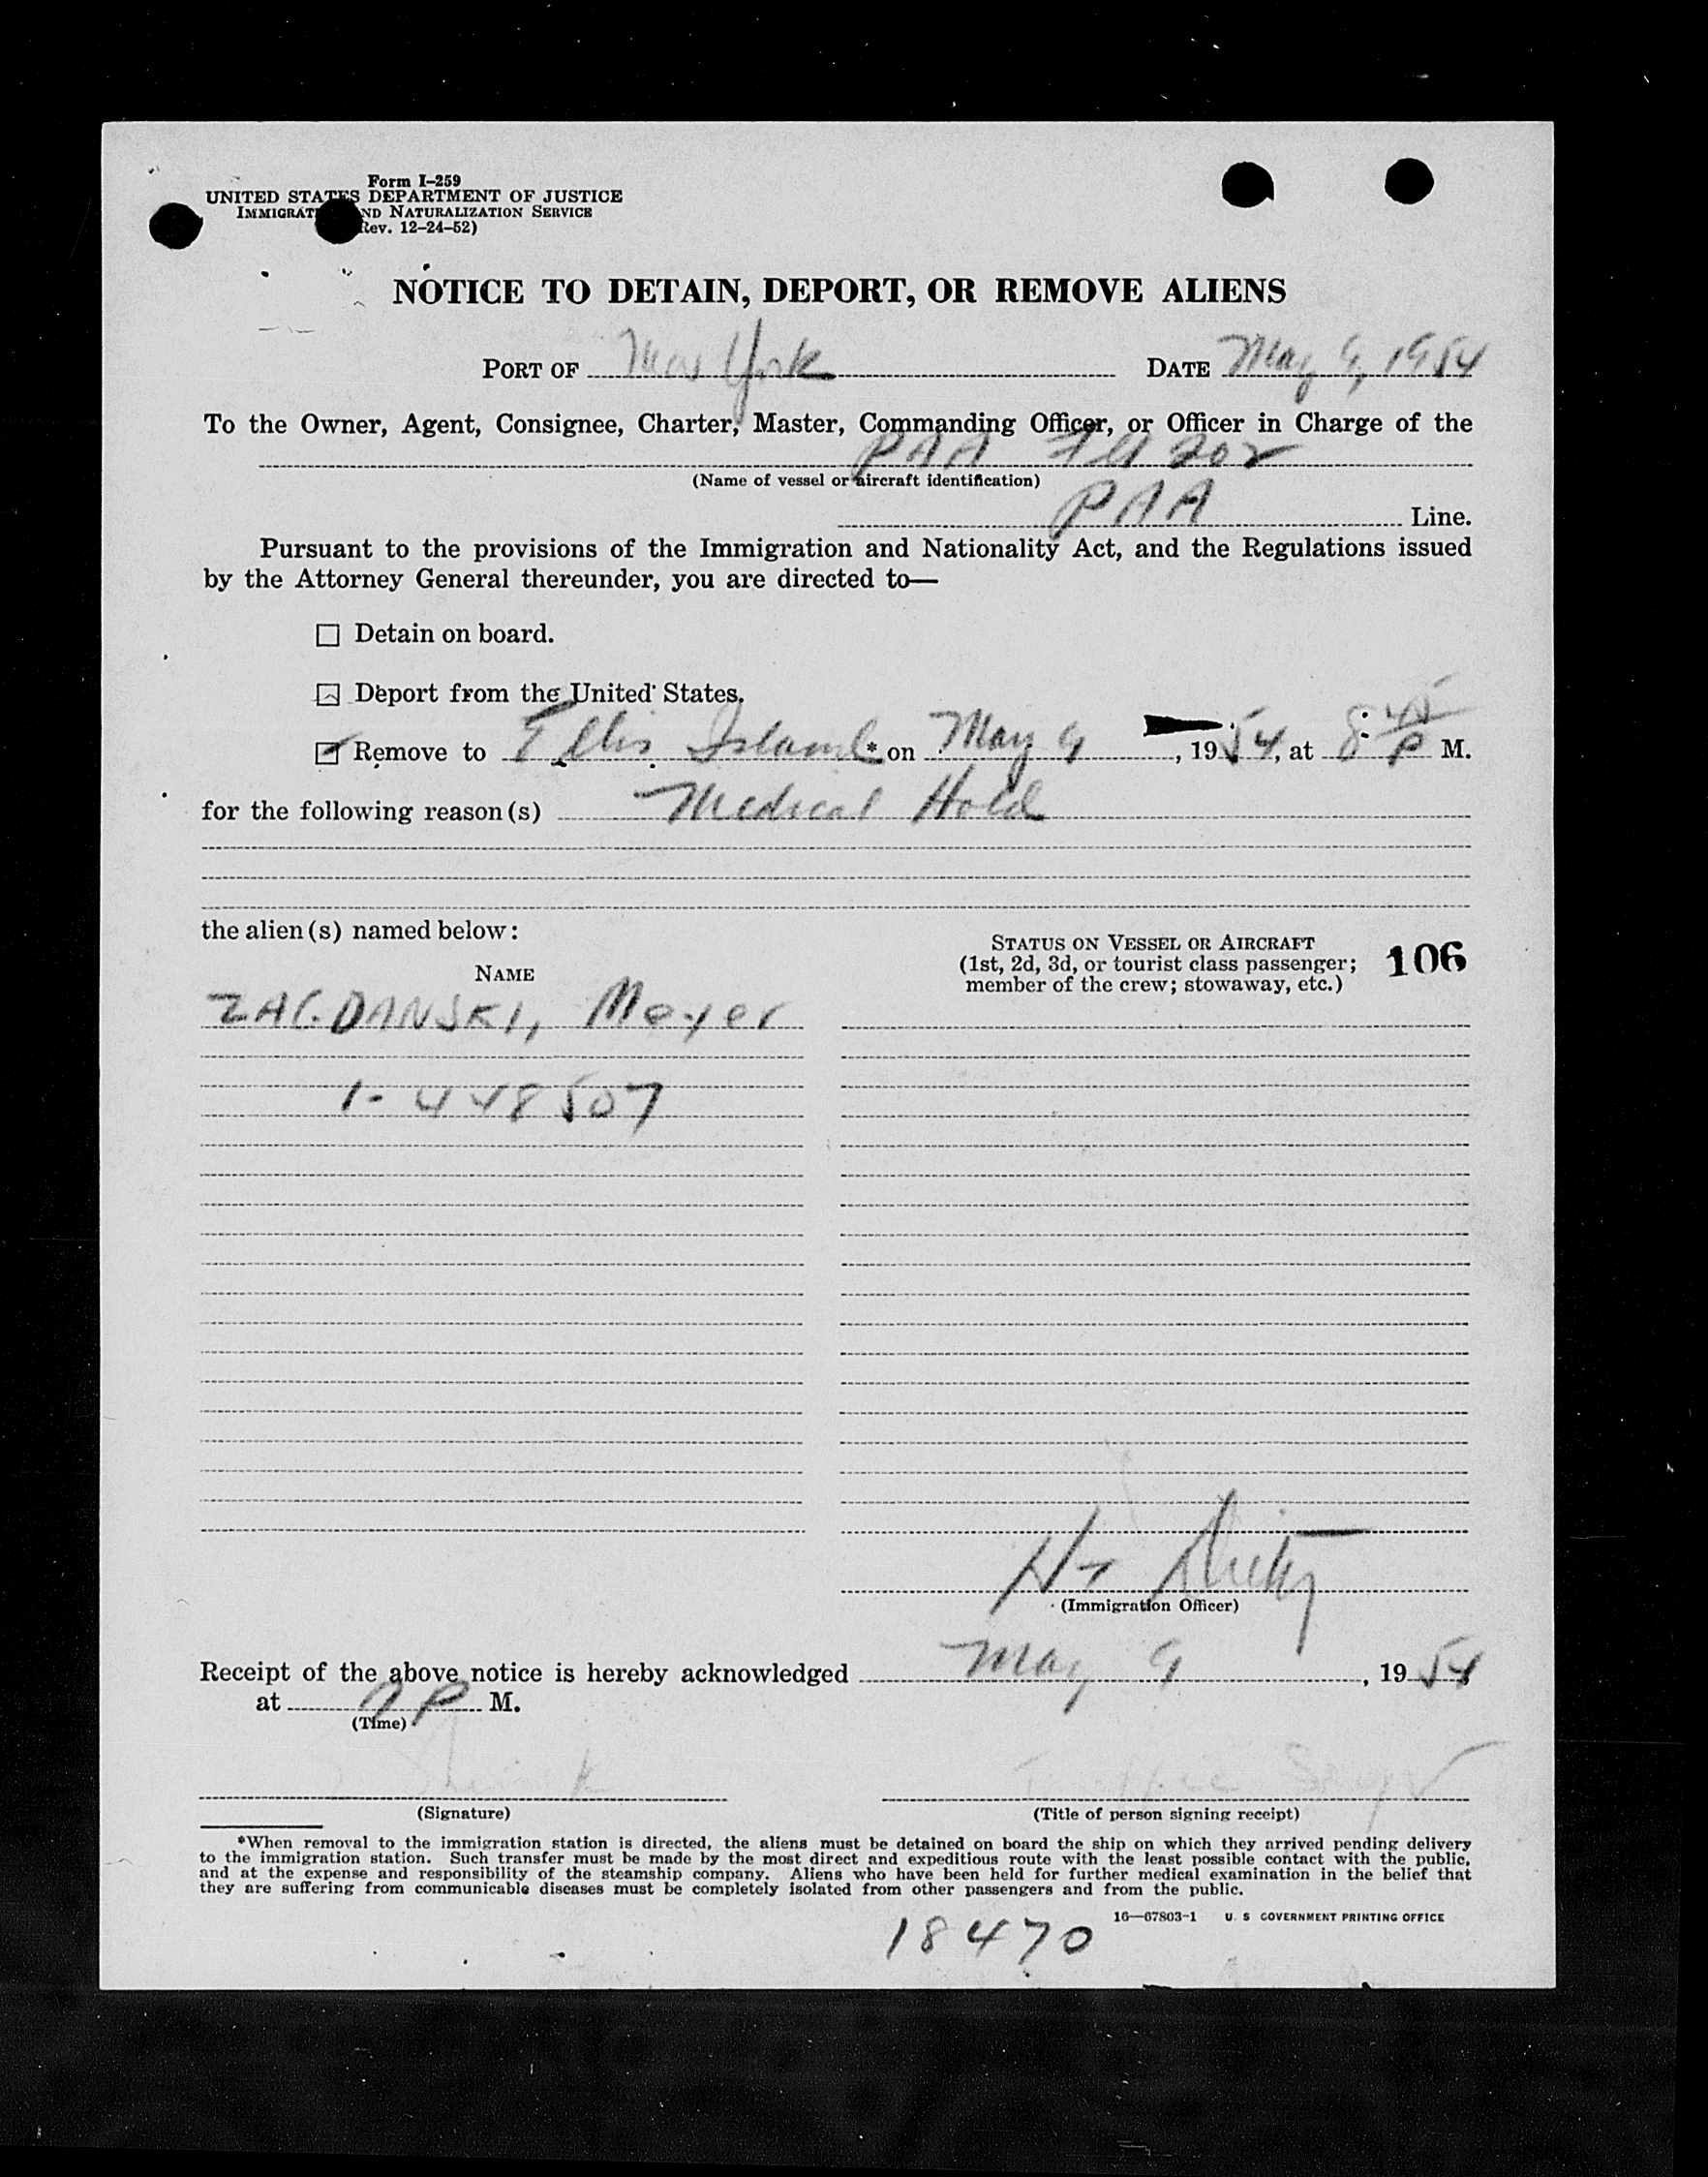 Form I-259
UNITED STATES DEPARTMENT OF JUSTICE
IMMIGRAT ND NATURALIZATION SERVICE
Rev. 12-24-52)
NOTICE TO DETAIN, DEPORT, OR REMOVE ALIENS
PORT OF New York DATE May 9, 1954
To the Owner, Agent, Consignee, Charter, Master, Commanding Officer, or Officer in Charge of the
PAA Flt 202
(Name of vessel or aircraft identification)
PAA Line.
Pursuant to the provisions of the Immigration and Nationality Act, and the Regulations issued
by the Attorney General thereunder, you are directed to—
☐ Detain on board.
☐ Deport from the United States.
☑ Remove to Ellis Island * on May 9, 1954, at 8:45 P M.
for the following reason(s) Medical Hold
the alien(s) named below:
STATUS ON VESSEL OR AIRCRAFT
(1st, 2d, 3d, or tourist class passenger;
member of the crew; stowaway, etc.)
106
NAME
ZAGDANSKI, Meyer
1-448507
(Immigration Officer)
Receipt of the above notice is hereby acknowledged May 9, 1954
at 9 P M.
(Time)
(Signature)
(Title of person signing receipt)
*When removal to the immigration station is directed, the aliens must be detained on board the ship on which they arrived pending delivery
to the immigration station. Such transfer must be made by the most direct and expeditious route with the least possible contact with the public,
and at the expense and responsibility of the steamship company. Aliens who have been held for further medical examination in the belief that
they are suffering from communicable diseases must be completely isolated from other passengers and from the public.
16—67803-1 U. S GOVERNMENT PRINTING OFFICE
18470